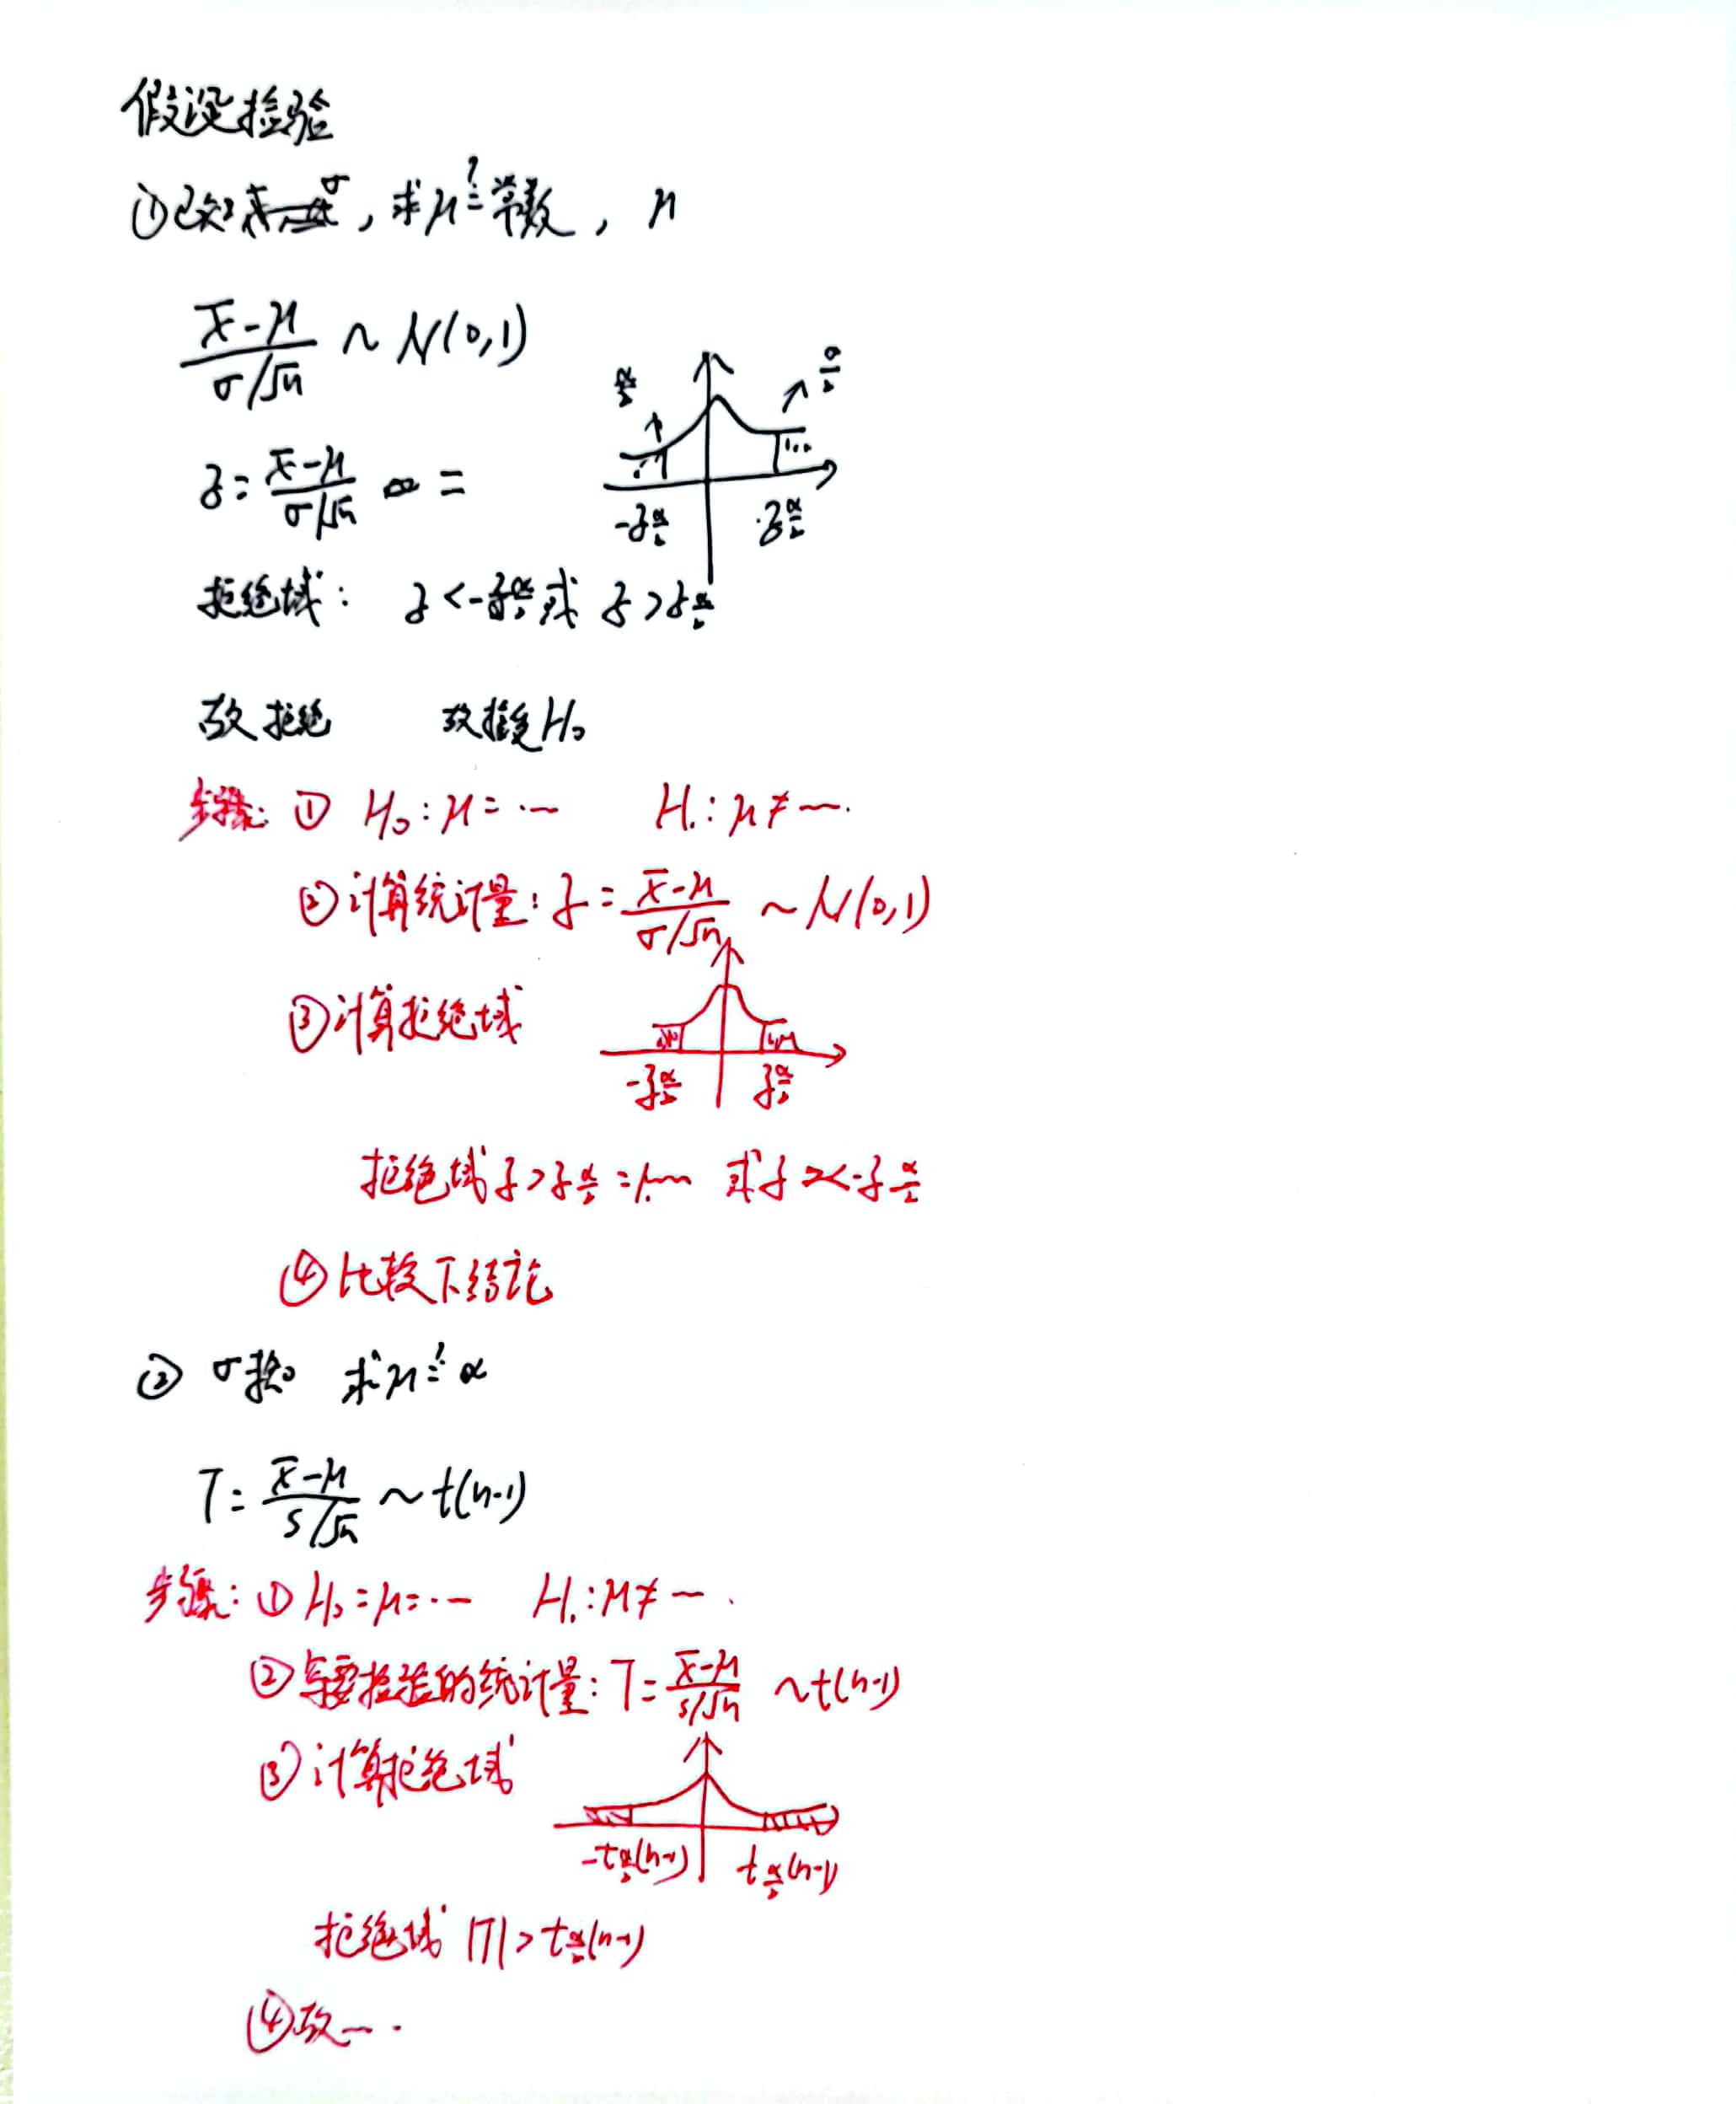 假设检验
①已知σ，求μ≟常数，μ
(x̄-μ)/(σ/√n) ~ N(0,1)
α/2 α/2
z = (x̄-μ)/(σ/√n) =
-zα/2 zα/2
拒绝域：z<-zα/2或 z>zα/2
故拒绝 故接受H₀
步骤：① H₀：μ=… H₁：μ≠…
②计算统计量：z = (x̄-μ)/(σ/√n) ~ N(0,1)
③计算拒绝域
-zα/2 zα/2
拒绝域 z>zα/2 = 或z<-zα/2
④比较下结论
② σ 求μ≟α
T = (x̄-μ)/(s/√n) ~ t(n-1)
步骤：① H₀=μ=… H₁：μ≠…
②写要检验的统计量：T = (x̄-μ)/(s/√n) ~t(n-1)
③计算拒绝域
-tα/2(n-1) tα/2(n-1)
拒绝域 |T|>tα/2(n-1)
④故…